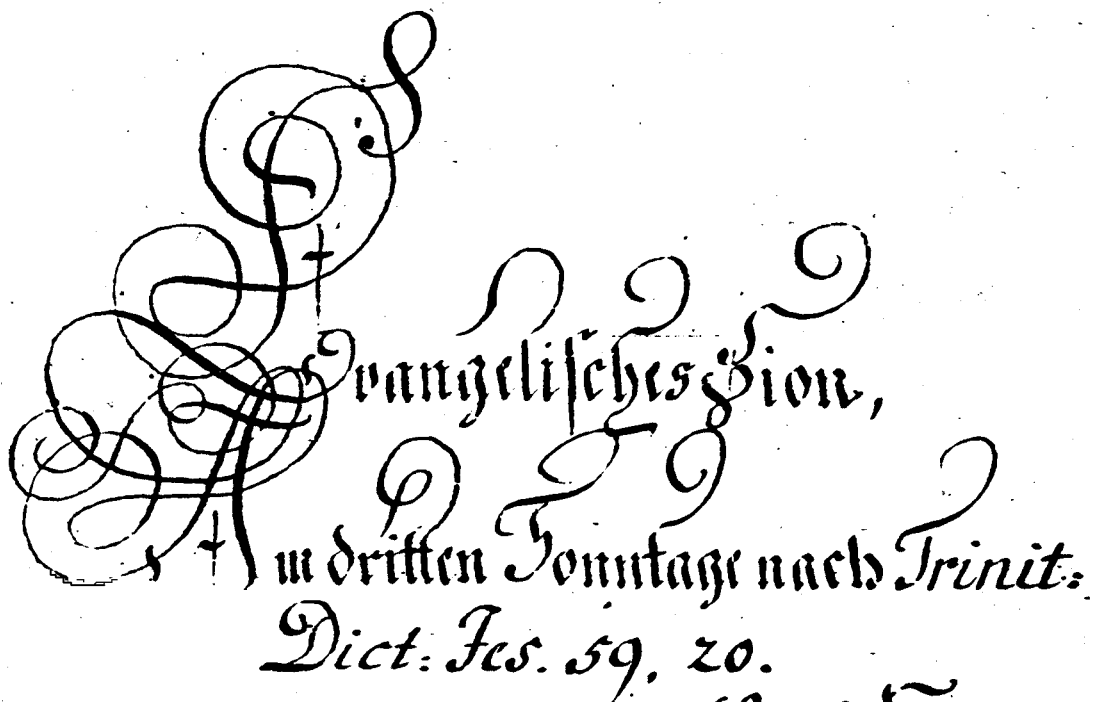 Evangelisches Zion,
Am dritten Sonntage nach Trinit:
Dict: Jes. 59, 20.